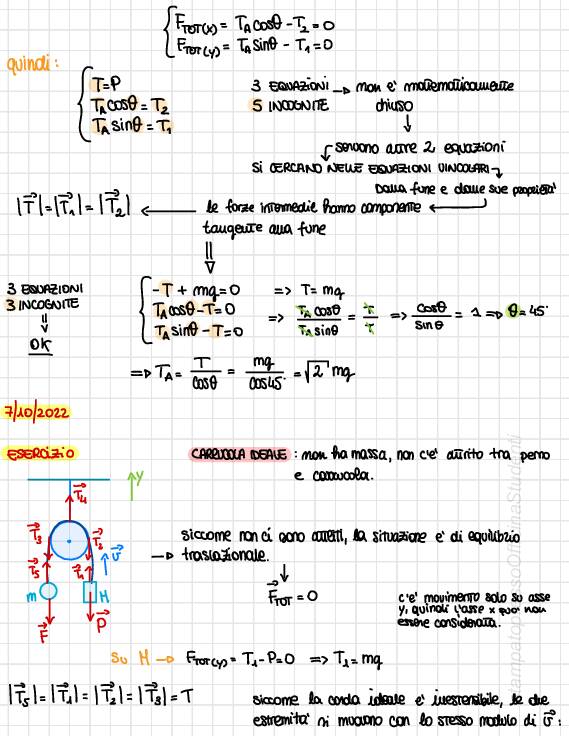 F_TOT(x) = T_A cosθ - T_2 = 0
F_TOT(y) = T_A sinθ - T_1 = 0
quindi:
T = P
T_A cosθ = T_2
T_A sinθ = T_1
3 EQUAZIONI → non e' matematicamente
5 INCOGNITE chiuso
↓
servono altre 2 equazioni
SI CERCANO NELLE EQUAZIONI VINCOLARI
dalla fune e dalle sue proprieta'
|T⃗| = |T⃗_1| = |T⃗_2| ← le forze intermedie hanno componente
tangente alla fune
⇓
3 EQUAZIONI
3 INCOGNITE
⇓
OK
-T + mg = 0 => T = mg
T_A cosθ - T = 0 => T_A cosθ / T_A sinθ = T / T => cosθ / sinθ = 1 => θ = 45°
T_A sinθ - T = 0
=> T_A = T / cosθ = mg / cos45° = √2 mg
7/10/2022
ESERCIZIO
CARRUCOLA IDEALE : non ha massa, non c'e' attrito tra perno
e carrucola.
y
T⃗_4
T⃗_3 T⃗_2
v⃗
T⃗_5 T⃗_1
m M
F⃗ P⃗
siccome non ci sono attriti, la situazione e' di equilibrio
→ traslazionale.
↓
F⃗_TOT = 0
c'e' movimento solo su asse
y, quindi l'asse x puo' non
essere considerata.
SU M → F_TOT(y) = T_1 - P = 0 => T_1 = mg
|T⃗_5| = |T⃗_1| = |T⃗_2| = |T⃗_3| = T
siccome la corda ideale e' inestensibile, le due
estremita' si muovono con lo stesso modulo di v⃗: